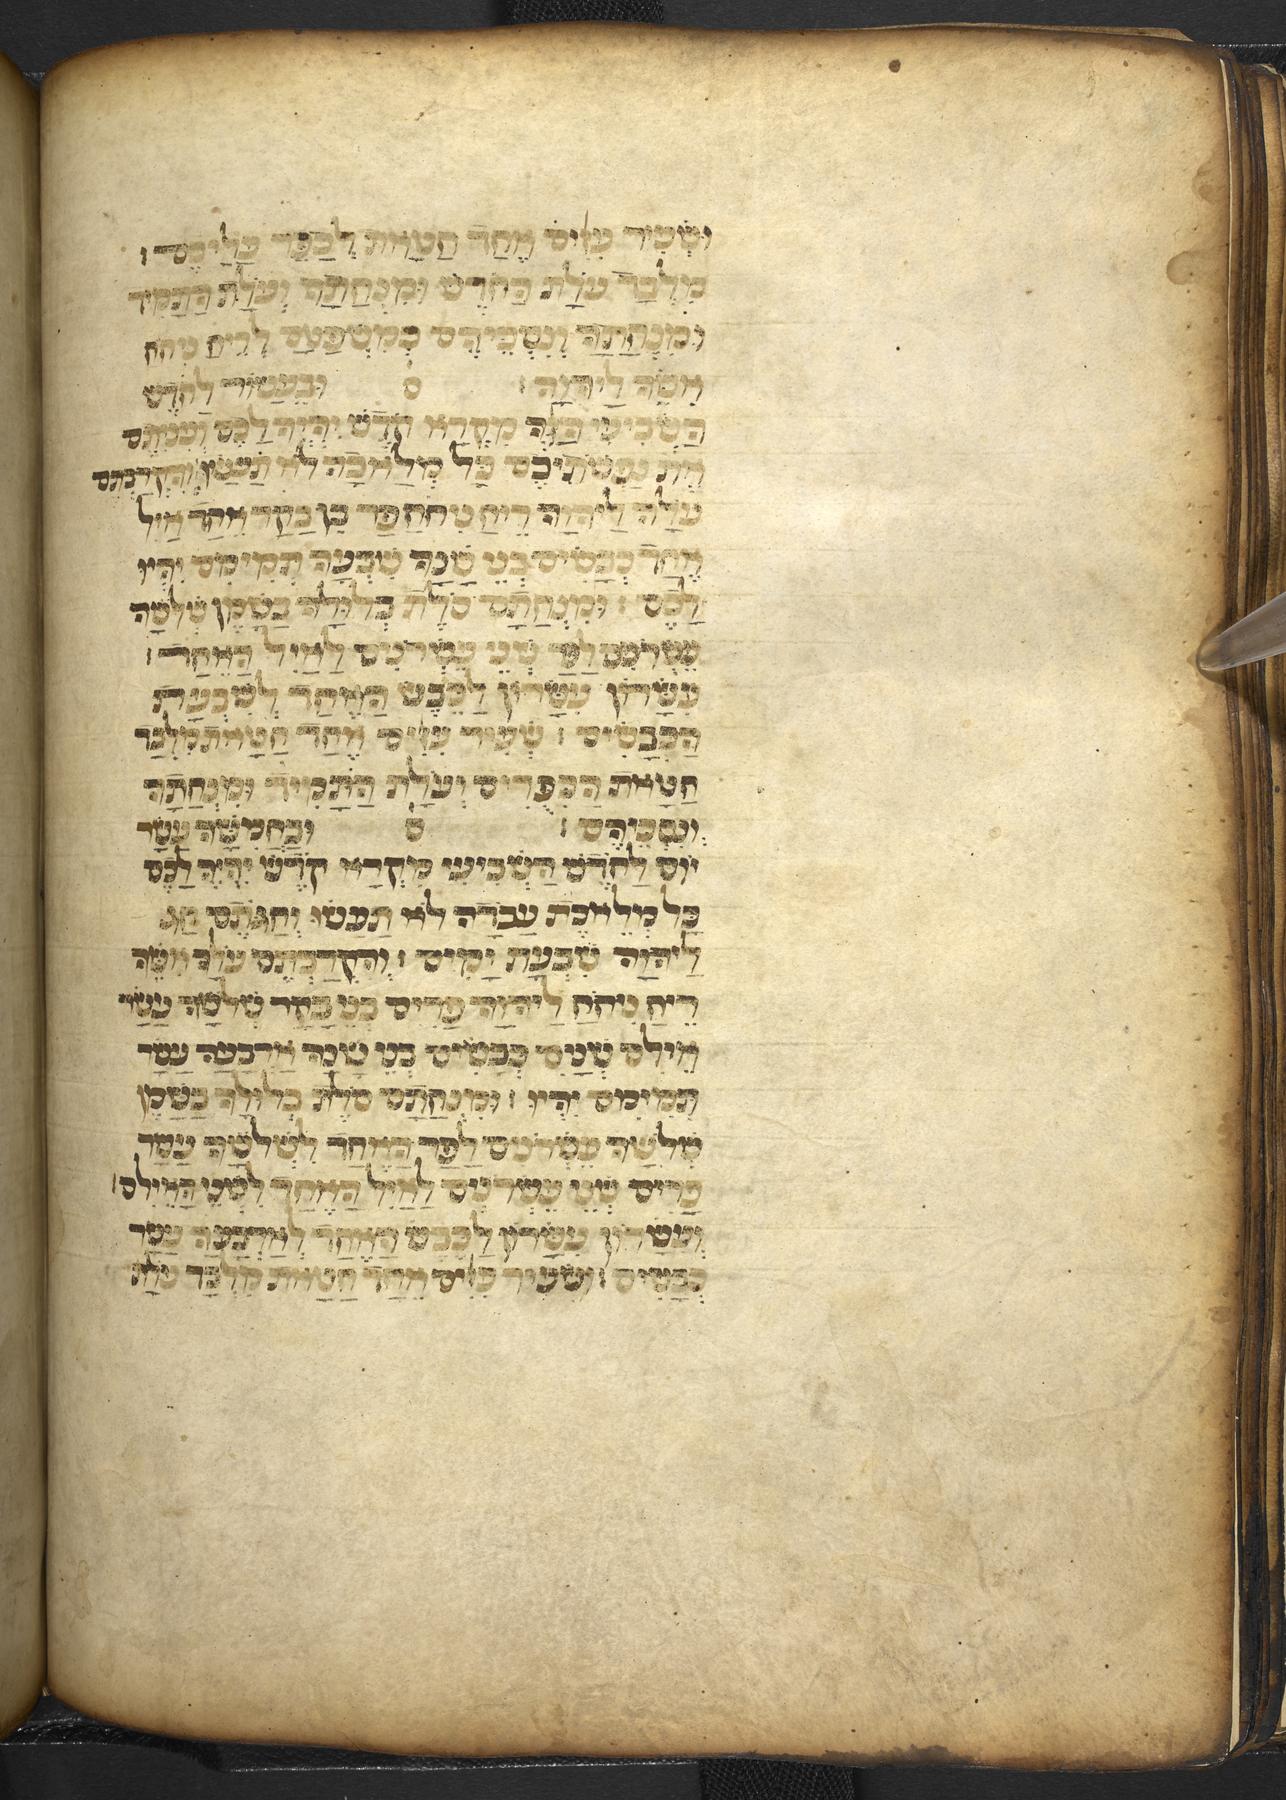 וּשְׂעִיר עִזִּים אֶחָד חַטָּאת לְכַפֵּר עֲלֵיכֶם ׃
מִלְּבַד עֹלַת הַחֹדֶשׁ וּמִנְחָתָהּ וְעֹלַת הַתָּמִיד
וּמִנְחָתָהּ וְנִסְכֵּיהֶם כְּמִשְׁפָּטָם לְרֵיחַ נִיחֹחַ
אִשֶּׁה לַיהוָה ׃ ס וּבֶעָשׂוֹר לַחֹדֶשׁ
הַשְּׁבִיעִי הַזֶּה מִקְרָא קֹדֶשׁ יִהְיֶה לָכֶם וְעִנִּיתֶם
אֶת נַפְשֹׁתֵיכֶם כָּל מְלָאכָה לֹא תַעֲשׂוּ ׃ וְהִקְרַבְתֶּם
עֹלָה לַיהוָה רֵיחַ נִיחֹחַ פַּר בֶּן בָּקָר אֶחָד אַיִל
אֶחָד כְּבָשִׂים בְּנֵי שָׁנָה שִׁבְעָה תְּמִימִם יִהְיוּ
לָכֶם ׃ וּמִנְחָתָם סֹלֶת בְּלוּלָה בַשָּׁמֶן שְׁלֹשָׁה
עֶשְׂרֹנִים לַפָּר שְׁנֵי עֶשְׂרֹנִים לָאַיִל הָאֶחָד ׃
עִשָּׂרוֹן עִשָּׂרוֹן לַכֶּבֶשׂ הָאֶחָד לְשִׁבְעַת
הַכְּבָשִׂים ׃ שְׂעִיר עִזִּים אֶחָד חַטָּאת מִלְּבַד
חַטַּאת הַכִּפֻּרִים וְעֹלַת הַתָּמִיד וּמִנְחָתָהּ
וְנִסְכֵּיהֶם ׃ ס וּבַחֲמִשָּׁה עָשָׂר
יוֹם לַחֹדֶשׁ הַשְּׁבִיעִי מִקְרָא קֹדֶשׁ יִהְיֶה לָכֶם
כָּל מְלֶאכֶת עֲבֹדָה לֹא תַעֲשׂוּ וְחַגֹּתֶם חַג
לַיהוָה שִׁבְעַת יָמִים ׃ וְהִקְרַבְתֶּם עֹלָה אִשֵּׁה
רֵיחַ נִיחֹחַ לַיהוָה פָּרִים בְּנֵי בָקָר שְׁלֹשָׁה עָשָׂר
אֵילִם שְׁנָיִם כְּבָשִׂים בְּנֵי שָׁנָה אַרְבָּעָה עָשָׂר
תְּמִימִם יִהְיוּ ׃ וּמִנְחָתָם סֹלֶת בְּלוּלָה בַשָּׁמֶן
שְׁלֹשָׁה עֶשְׂרֹנִים לַפָּר הָאֶחָד לִשְׁלֹשָׁה עָשָׂר
פָּרִים שְׁנֵי עֶשְׂרֹנִים לָאַיִל הָאֶחָד לִשְׁנֵי הָאֵילִם ׃
וְעִשָּׂרוֹן עִשָּׂרוֹן לַכֶּבֶשׂ הָאֶחָד לְאַרְבָּעָה עָשָׂר
כְּבָשִׂים ׃ וּשְׂעִיר עִזִּים אֶחָד חַטָּאת מִלְּבַד עֹלַת